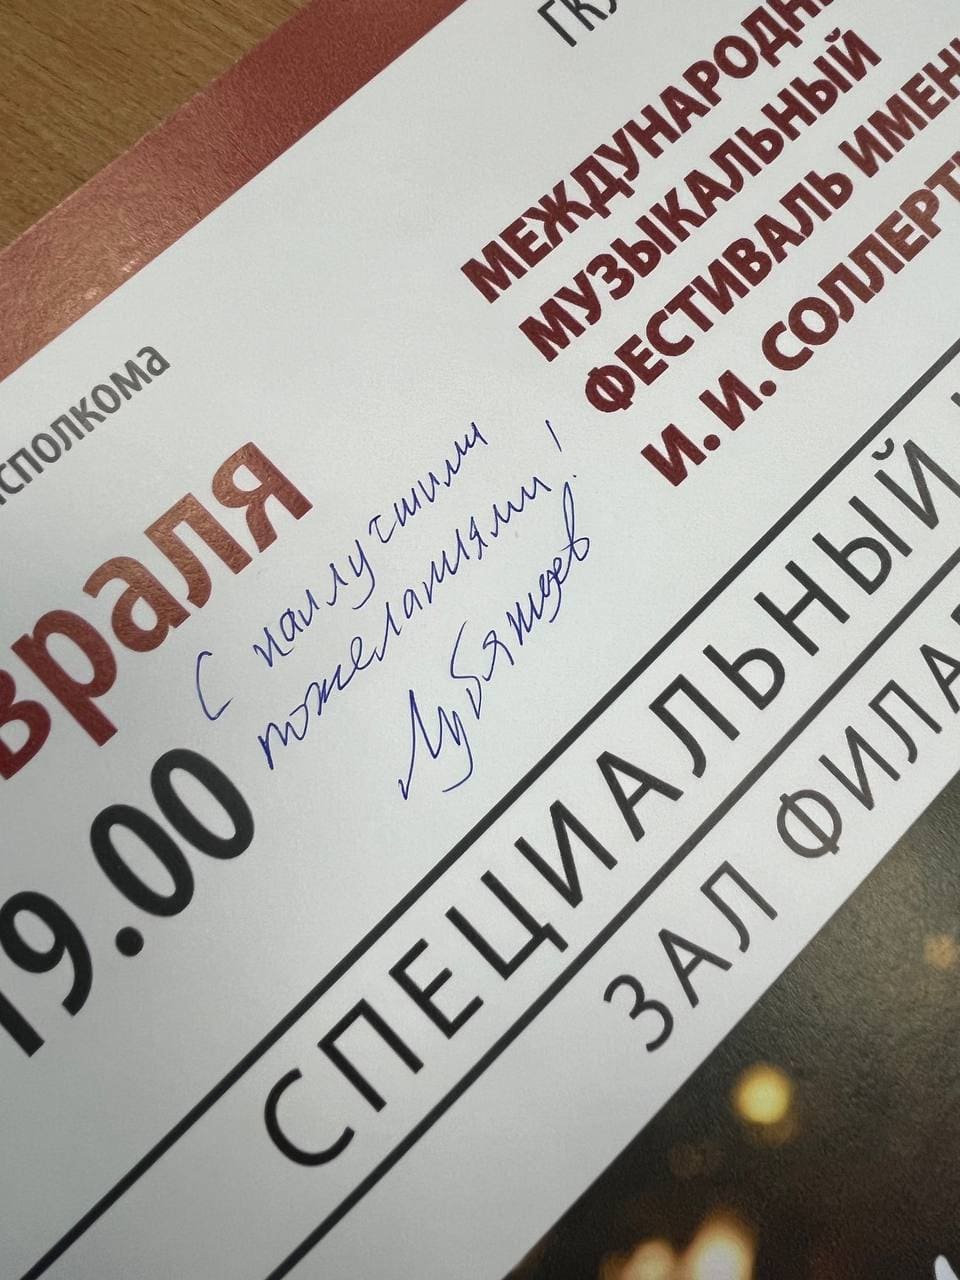 ГК
МЕЖДУНАРОДНЫ
МУЗЫКАЛЬНЫЙ
ФЕСТИВАЛЬ ИМЕН
И. И. СОЛЛЕРТ
сполкома
враля
19.00
С наилучшими
пожеланиями!
Лубянцев
СПЕЦИАЛЬНЫЙ
ЗАЛ ФИЛА